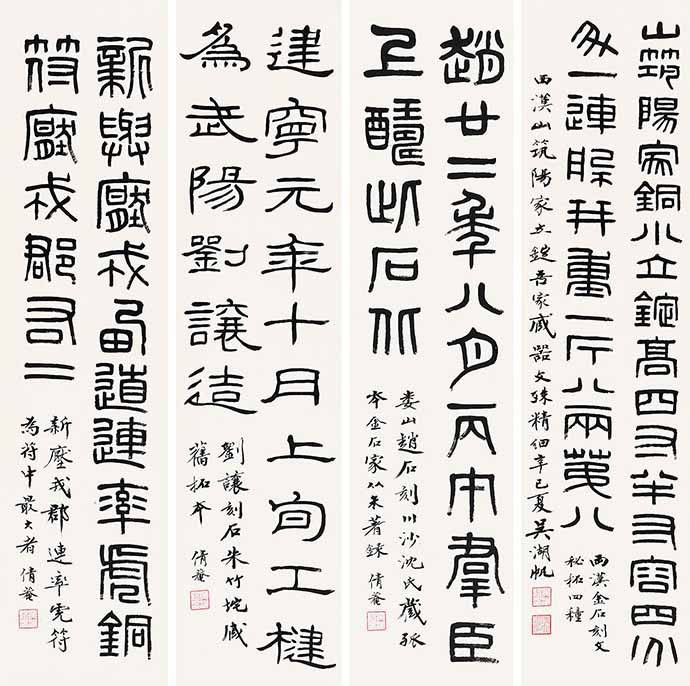 山筑陽家銅小立錠高四寸半寸容四
一連并重一斤八兩第八
西漢山筑陽家立錠吾家藏器文殊精細辛巳夏吳湖帆
西漢金石刻文
秘拓四種
趙廿二年八月丙寅羣臣
上醻此石北
娄山趙石刻川沙沈氏藏張
本金石家从未著録 倩菴
建寧元年十月上旬工楗
為武陽劉讓造
劉讓刻石朱竹垞藏
舊拓本 倩菴
新與壓戎道連率虎銅
符壓戎郡右二
新壓戎郡連率虎符
為符中最大者 倩菴